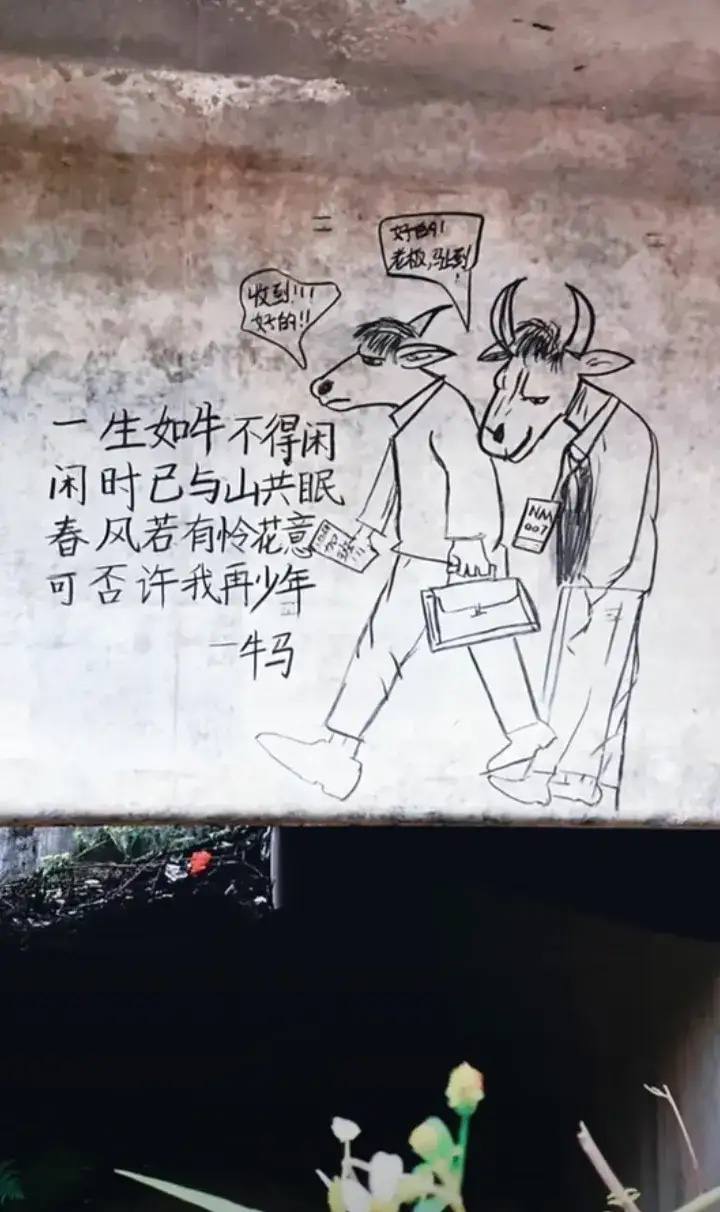 收到!!!
好的!!
好的!
老板,马上到!
一生如牛不得闲
闲时已与山共眠
春风若有怜花意
可否许我再少年
一牛马
NM
007